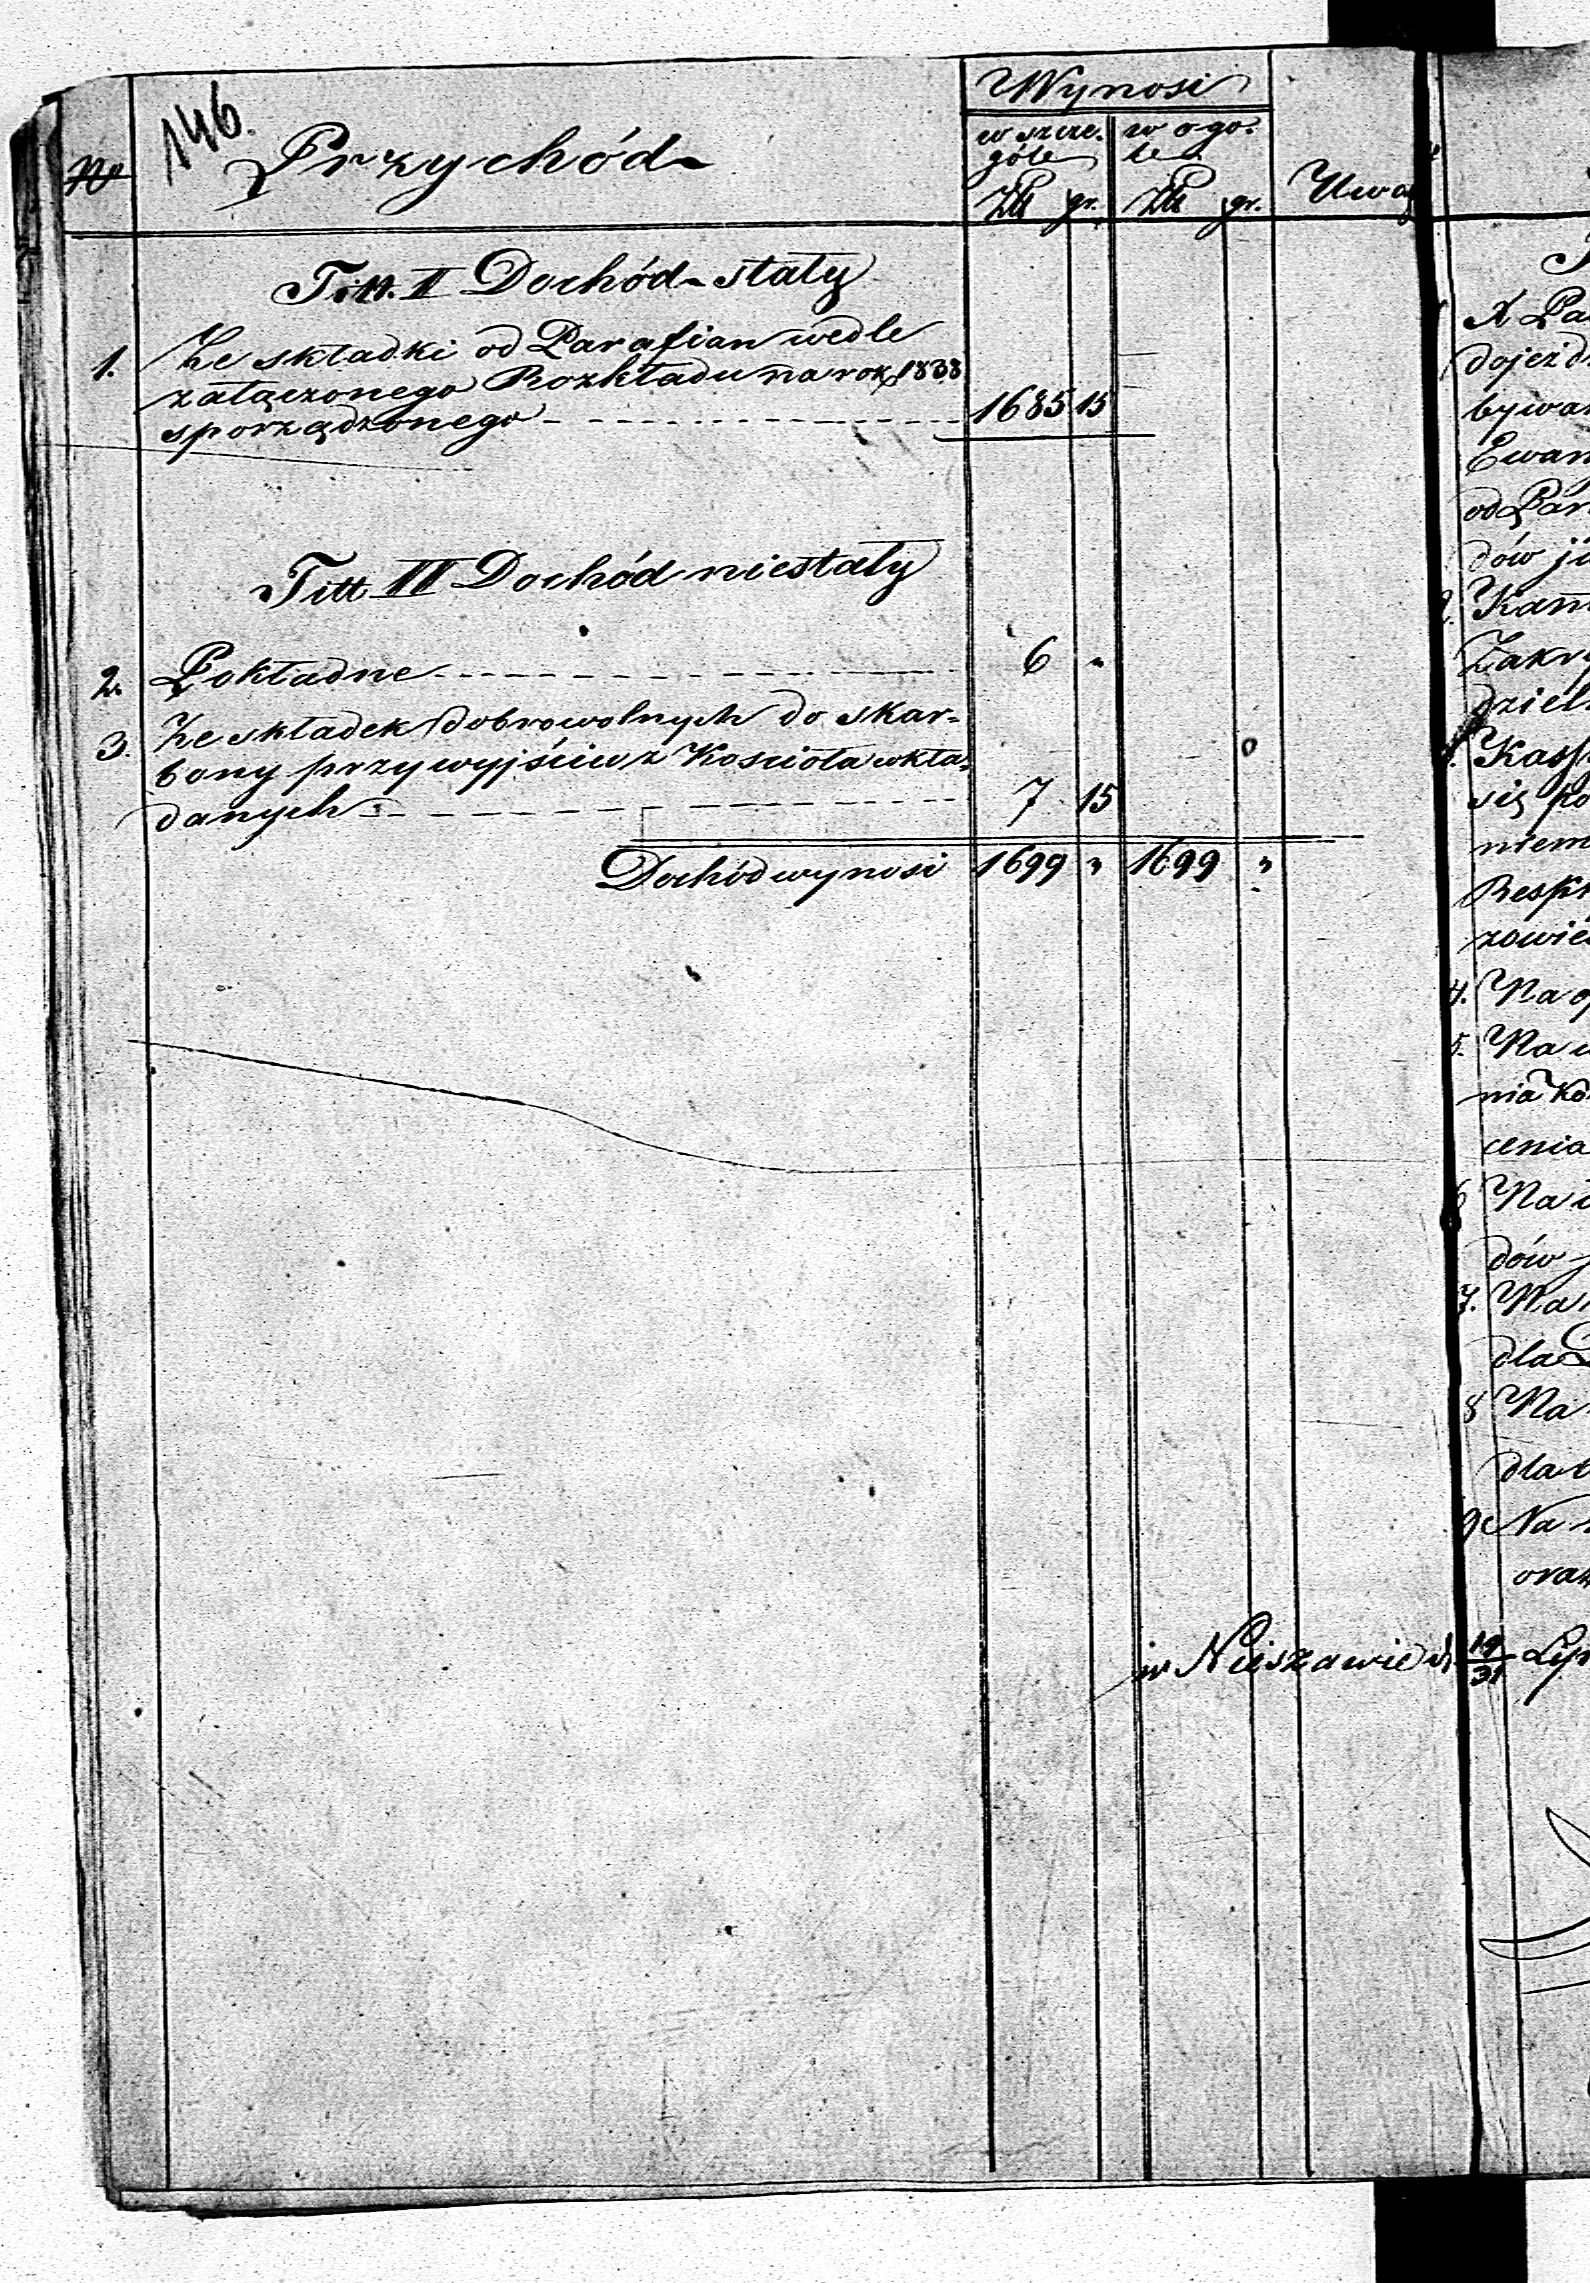 146.
№ Przychód
Wynosi
w szcze-
góle
w ogó-
le
Złt gr. Złt gr.
Uwa
Titt. II Dochód stały
1. Ze składki od Parafian wedle
załączonego Rozkładu na rok 1838
sporządzonego 1685 15
Titt III Dochód niestały
2. Pokładne 6 "
3. Ze składek dobrowolnych do skar-
bony przy wyjściu z Kościoła wkła-
danych 7 15
Dochód wynosi 1699 " 1699 "
X Pa
dojeżd
bywan
Ewan
od Par
dów
Kan
Zakry
dziel
Kass
się po
niem
Resp
zowie
4. Na o
5. Na
nia Ko
cenia
6 Na
dów
7. Na
dla
8 Na
dla
9 Na
oraz
w Nieszawie d 19/31 Lip